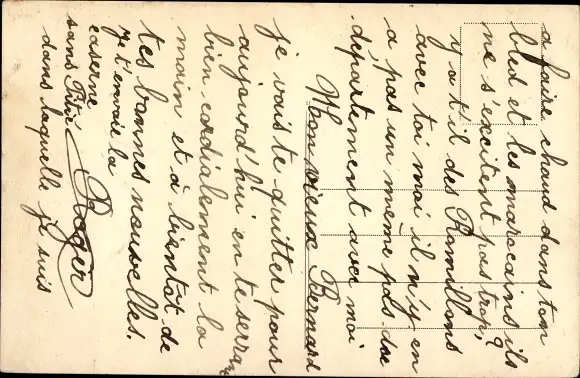 a faire chaud dans ton
bled et les marocains ils
ne s'excitent pas trop?
y a t'il des Ramillons
avec toi moi il n'y en
a pas un même pas du
département avec moi
Mon vieux Bernard
je vais te quitter pour
aujourd'hui en te serrant
bien cordialement la
main et à bientôt de
tes bonnes nouvelles.
Je t'envoie la
caserne Roger
sans
dans laquelle je suis